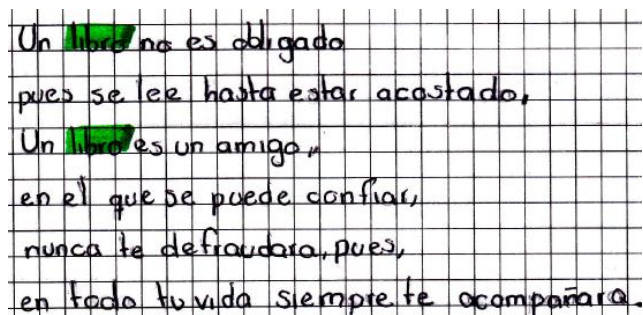 Un libro no es obligado
pues se lee hasta estar acostado,
Un libro es un amigo,
en el que se puede confiar,
nunca te defraudara, pues,
en toda tu vida siempre te acompañara.